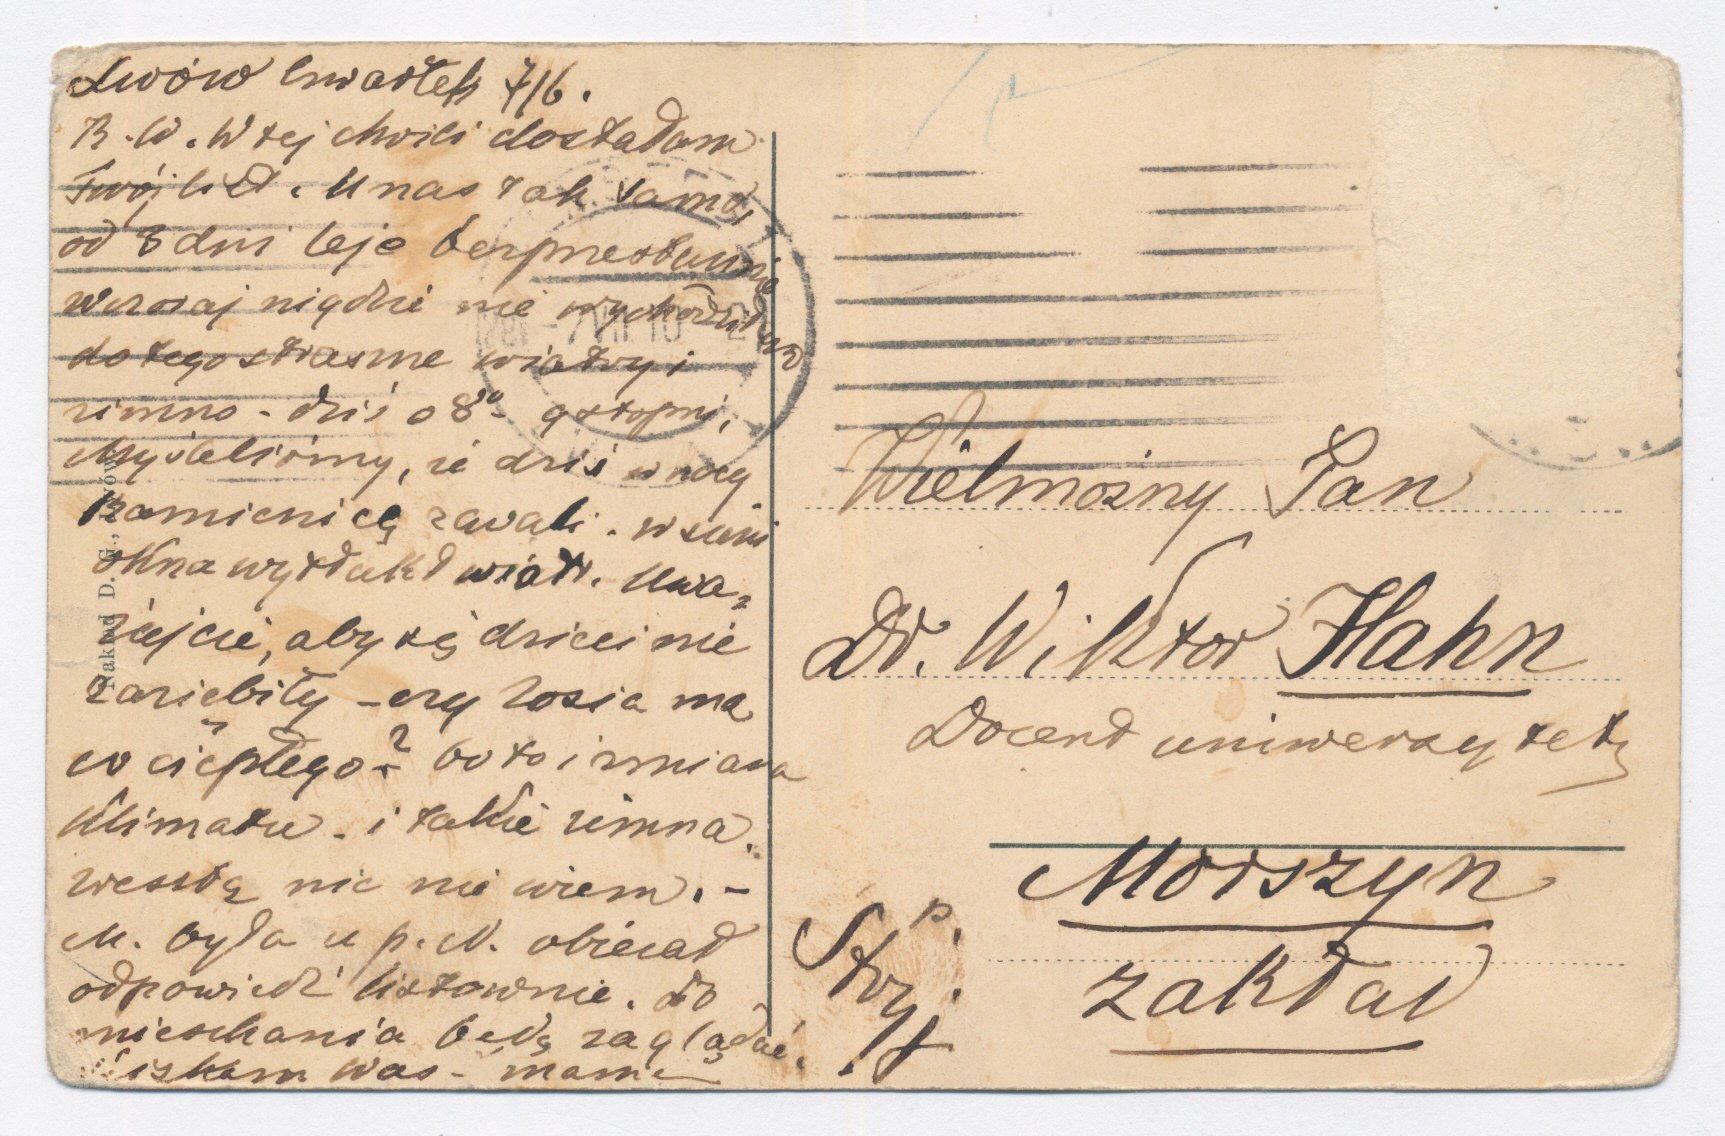 Lwów Czwartek 7/6.
R. W. W tej chwili dostałam
Twój list. U nas tak samo,
od 8 dni leje bezprzestannie
wczoraj nigdzie nie wychodziłam
do tego straszne wiatry i
zimno - dziś o 8º stopni,
Myśleliśmy, że dziś w nocy
kamienicę zawali. W sieni
okna wytłukł wiatr. Uwa-
żajcie, aby się dzieci nie
zaziębiły - czy Zosia ma
co ciepłego? bo to i zmiana
klimatu - i takie zimna.
zresztą nic nie wiem. -
M. była u p. N. obiecał
odpowiedź listownie. do
mieszkania będę zaglądać.
Ściskam Was - mama
Nakład D. G., Lwów
Wielmożny Pan
Dr. Wiktor Hahn
Docent uniwersytetu
Morszyn
p. Stryj
zakład